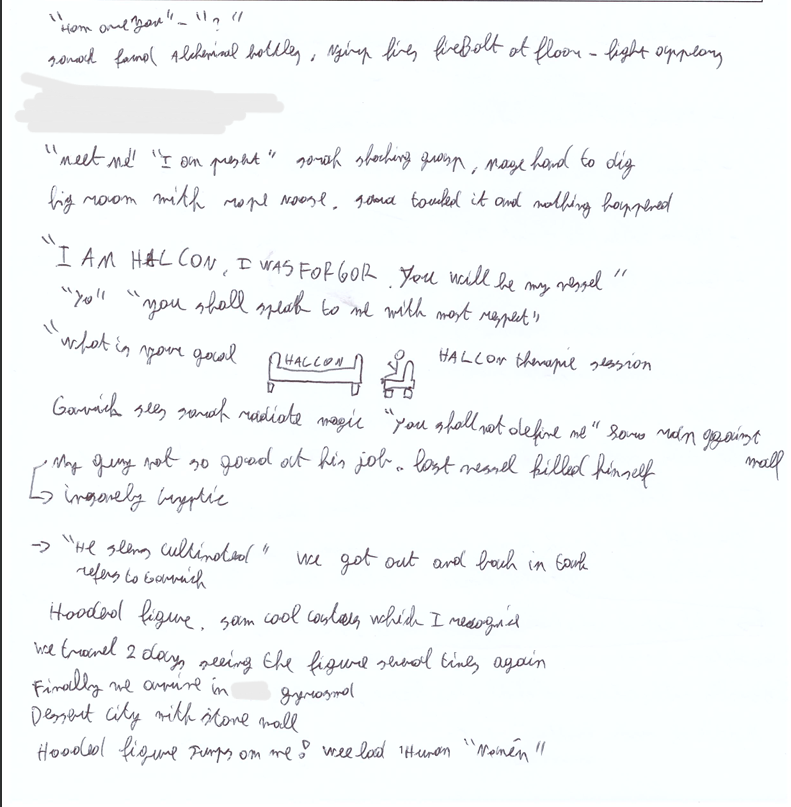 "Hom are you" - "?"
sarach found Alchemical bottles, fires fireBolt at floor - light appears
"meet me" "I am present" sarah shocking group, mage hand to dig
big room with rope noose. touched it and nothing happened
"I AM HALCON, I WAS FORGOR. You will be my vessel"
"Yo" "you shall speak to me with most respect"
"What is your goal
HALCON
HALCON therapie session
Garrick sees sarah radiate magic "You shall not define me" ran against
wall
My guy not so good at his job. last vessel killed himself
insanely cryptic
→ "He seems cultivated" we got out and back in
refers to Garrick
Hooded figure, cool which I recognise
we travel 2 days, seeing the figure several times again
Finally we arrive in
Dessert city with stone wall
Hooded figure jumps on me! Human